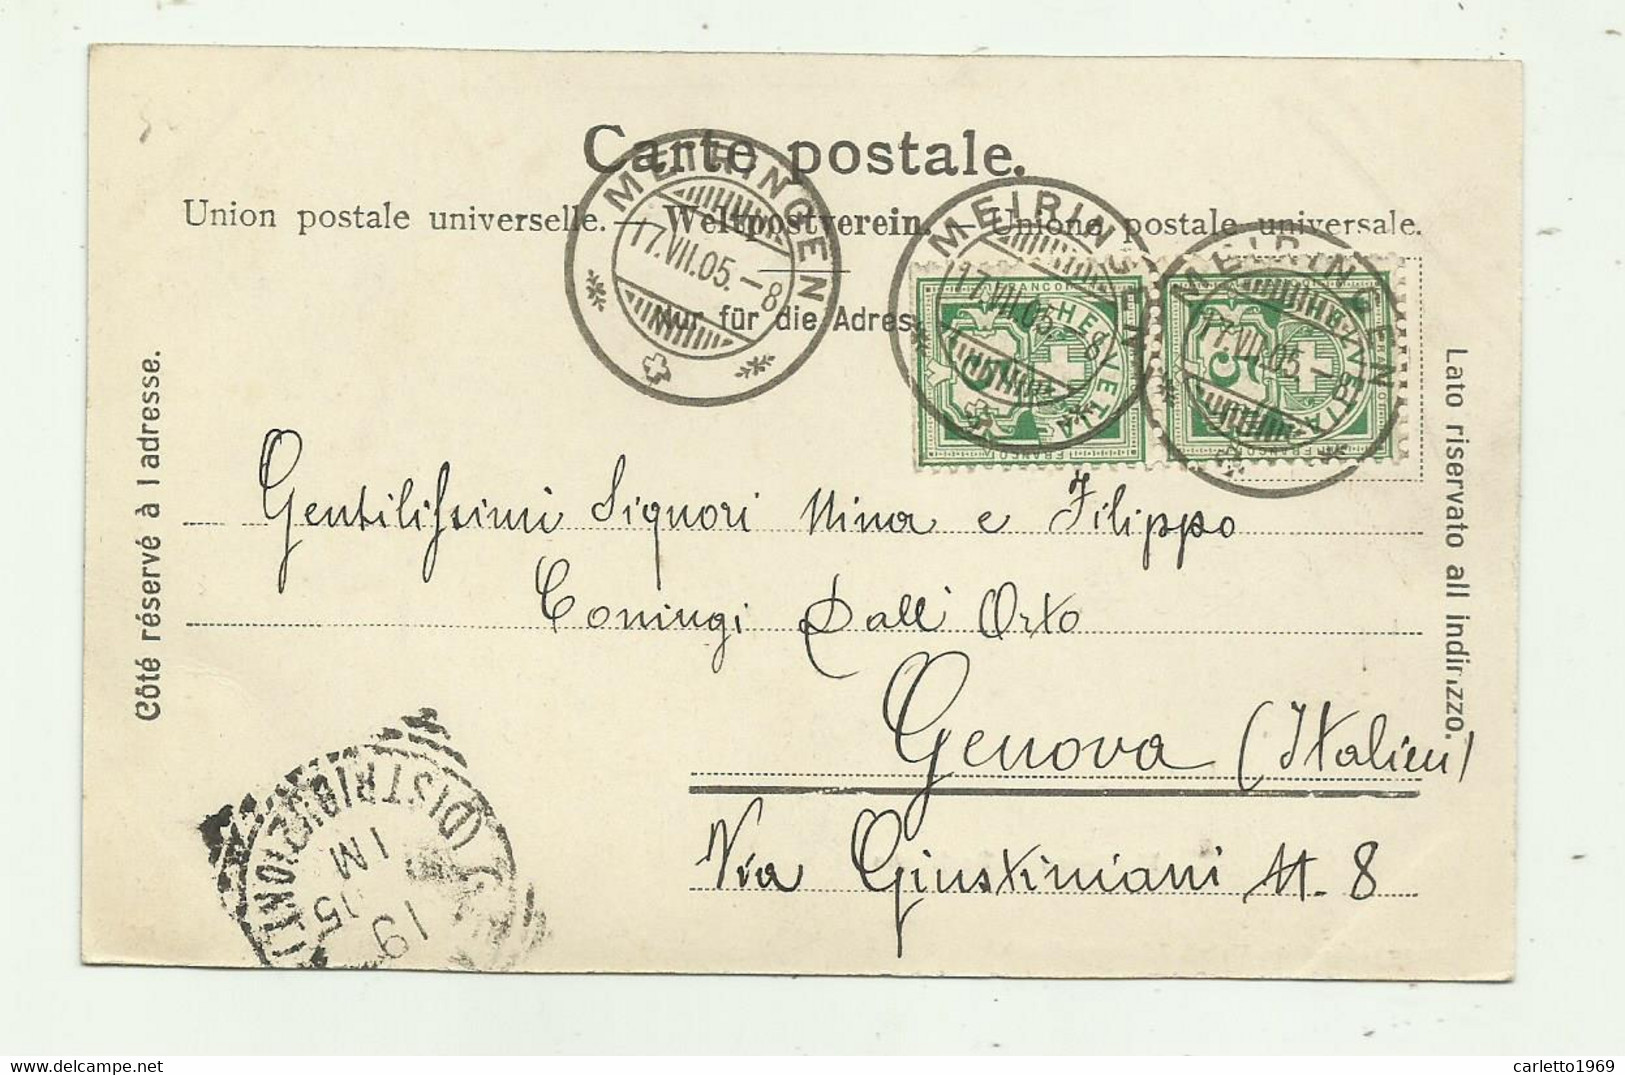 Carte postale.
Union postale universelle. — Weltpostverein. — Unione postale universale.
Nur für die Adres
MEIRINGEN
17.VII.05.–8
MEIRINGEN
17.VII.05.–8
MEIRINGEN
17.VII.05.–8
FRANCO
HELVETIA
5
HELVETIA
5
Côté réservé à l adresse.
Lato riservato all indirizzo.
Gentilissimi Signori Nina e Filippo
Coningi Dall' Orto
Genova (Italien)
Via Giustiniani N. 8
(DISTRIBUZIONE)
1 M
19 05
carletto1969